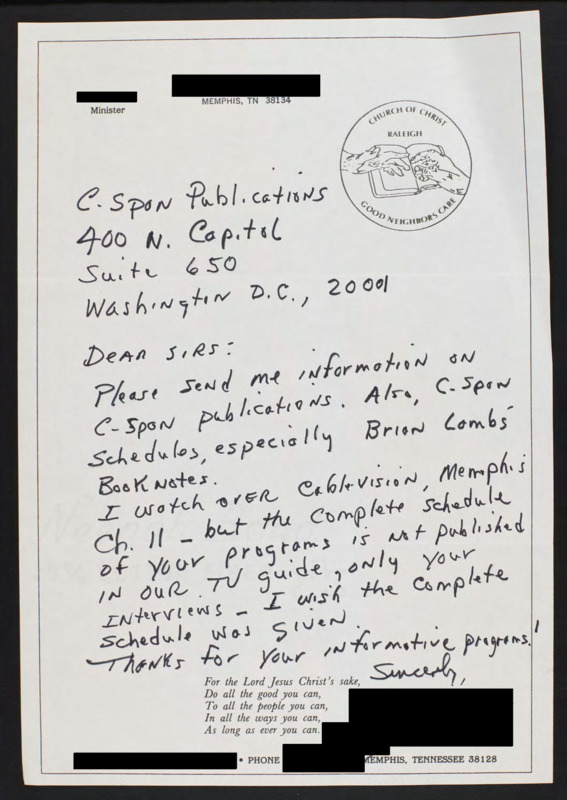 Minister
MEMPHIS, TN 38134
CHURCH OF CHRIST
RALEIGH
GOOD NEIGHBORS CARE
C-Span Publications
400 N. Capitol
Suite 650
Washington D.C., 20001
Dear Sirs:
Please send me information on
C-Span publications. Also, C-Span
Schedules, especially Brian Lambs'
Book Notes.
I watch over Cablevision, Memphis
Ch. 11 - but the complete schedule
of your programs is not published
in our TV guide, only your
Interviews - I wish the complete
schedule was given.
Thanks for your informative programs!
Sincerely,
For the Lord Jesus Christ's sake,
Do all the good you can,
To all the people you can,
In all the ways you can,
As long as ever you can.
• PHONE
MEMPHIS, TENNESSEE 38128